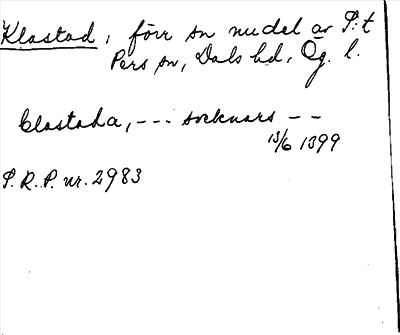 Klastad, förr sn nu del av S:t
Pers sn, Dals hd, Ög. l.
Clastadha, --- soknars --
13/6 1399
S.R.P. nr. 2983